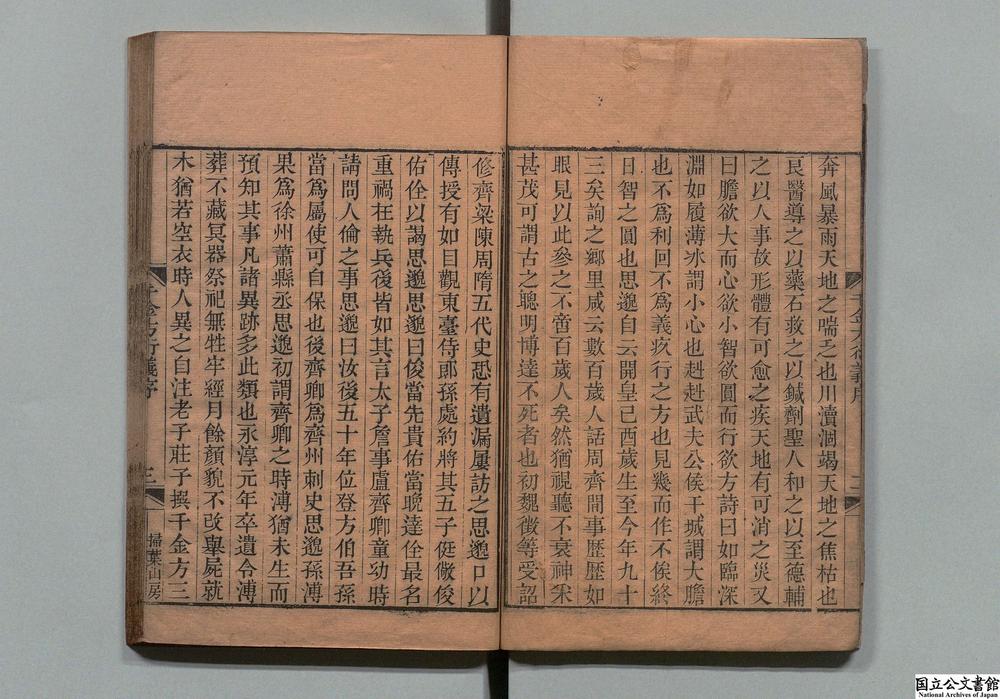 奔風暴雨天地之喘乏也川瀆涸竭天地之焦枯也
良醫導之以藥石救之以鍼劑聖人和之以至德輔
之以人事故形體有可愈之疾天地有可消之災又
曰膽欲大而心欲小智欲圓而行欲方詩曰如臨深
淵如履薄冰謂小心也赳赳武夫公侯干城謂大膽
也不爲利回不爲義疚行之方也見幾而作不俟終
日智之圓也思邈自云開皇己酉歲生至今年九十
三矣詢之鄉里咸云數百歲人話周齊間事歷歷如
眼見以此參之不啻百歲人矣然猶視聽不衰神采
甚茂可謂古之聰明博達不死者也初魏徵等受詔
修齊梁陳周隋五代史恐有遺漏屢訪之思邈口以
傳授有如目觀東臺侍郎孫處約將其五子侹儆俊
佑佺以謁思邈思邈曰俊當先貴佑當晚達佺最名
重禍在執兵後皆如其言太子詹事盧齊卿童幼時
請問人倫之事思邈曰汝後五十年位登方伯吾孫
當爲屬使可自保也後齊卿爲齊州刺史思邈孫溥
果爲徐州蕭縣丞思邈初謂齊卿之時溥猶未生而
預知其事凡諸異跡多此類也永淳元年卒遺令溥
葬不藏冥器祭祀無牲牢經月餘顏貌不改舉屍就
木猶若空衣時人異之自注老子莊子撰千金方三
千金方衍義序
三
掃葉山房
国立公文書館
National Archives of Japan